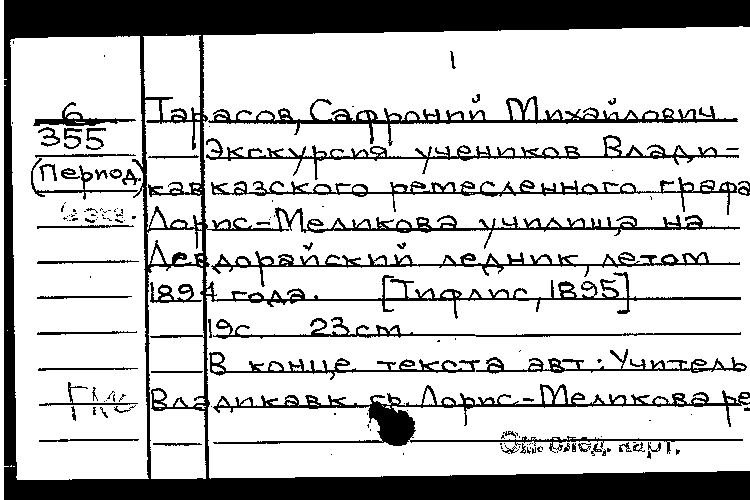 1
6
355
(Период.)
Тарасов, Сафроний Михайлович
Экскурсия учеников Влади-
кавказского ремесленного графа
Лорис-Меликова училища на
Девдорайский ледник, летом
1894 года. [Тифлис, 1895].
19с 23см.
В конце текста авт.: Учитель
Владикавк. гр. Лорис-Меликова ре
См. след. карт.